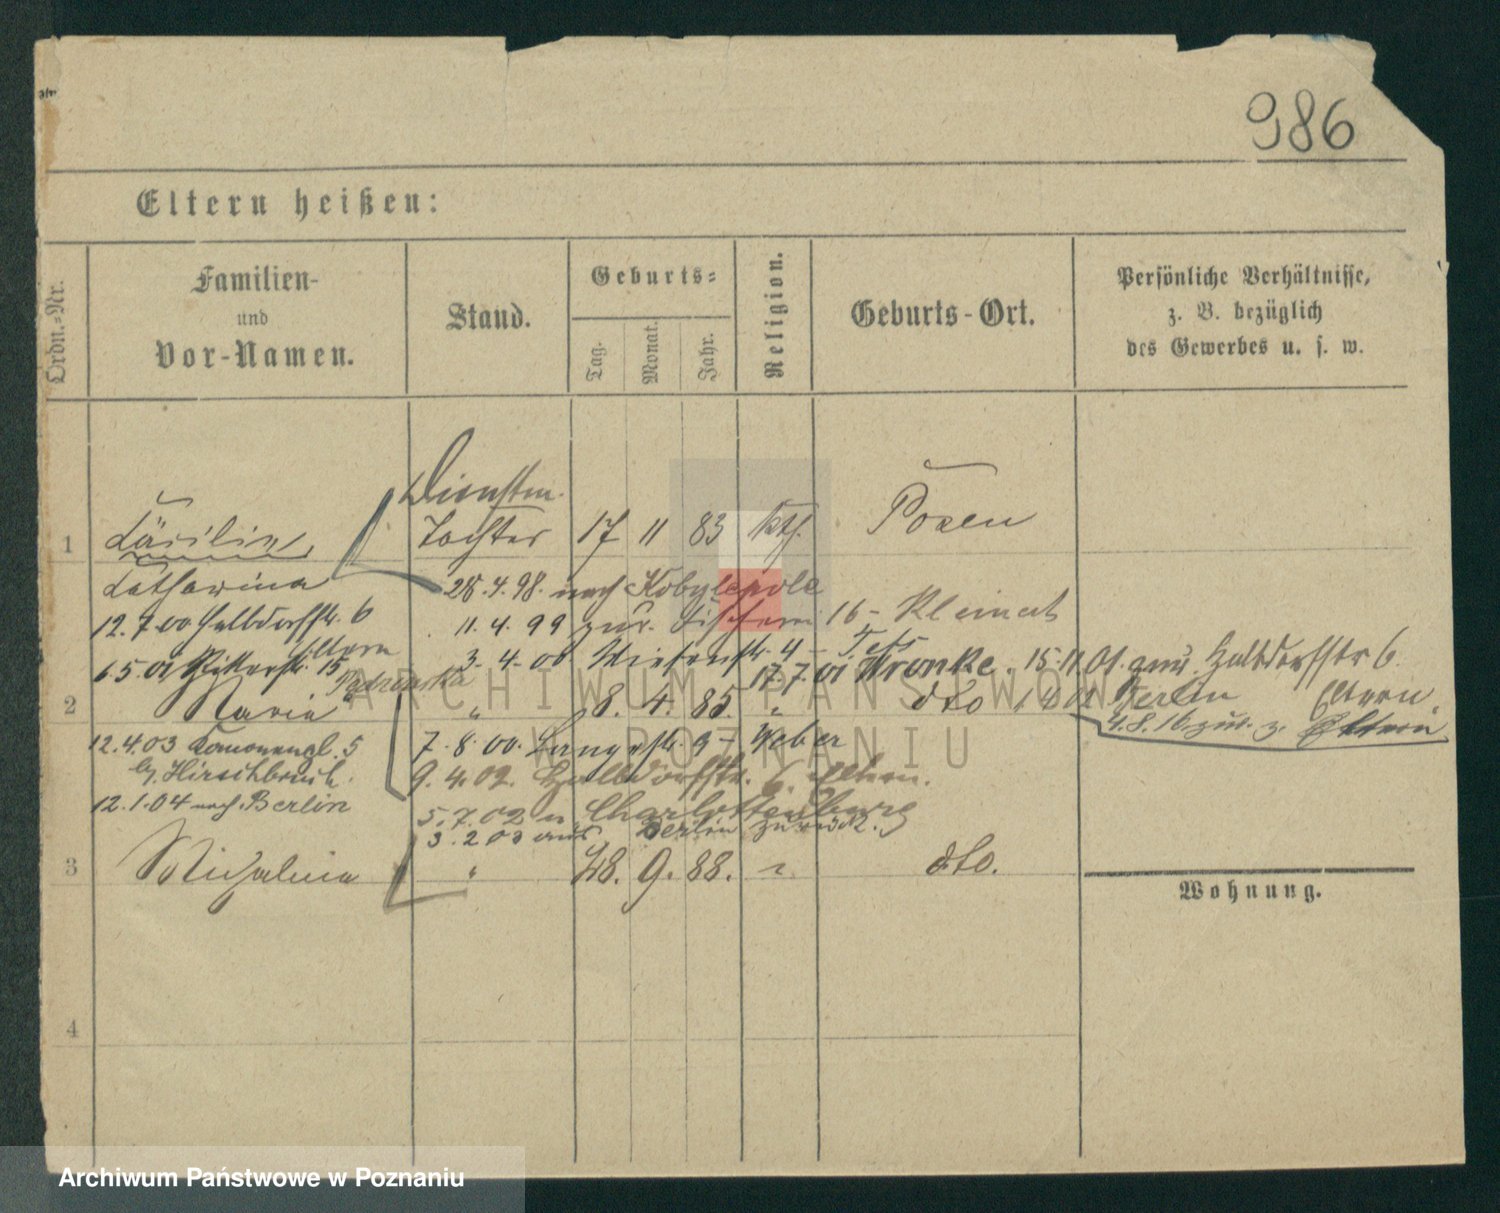 986
Eltern heißen:
Ordn.-Nr.
Familien-
und
Vor-Namen.
Stand.
Geburts=
Tag.
Monat.
Jahr.
Religion.
Geburts-Ort.
Persönliche Verhältnisse,
z. B. bezüglich
des Gewerbes u. s. w.
Diensten.
1 Cäcilie Tochter 17 11 83 kth. Posen
Catharina 28.4.98. nach Kobylepole
12.7.00 Halbdorfstr. 6 11.4.99 zur. Fischerei 16 -
Eltern 3.4.00 Wiesenstr. 4 -
6.5.01 Ritterstr. 15 17.7.01 Wronke. 15.11.01. zur. Halbdorfstr 6.
2 Maria " 8. 4. 85. " dto Berlin Eltern.
4.8.16 zur. z. Eltern
12.4.03 5 7.8.00. Langestr. 9 - Weber
b/ Hirschbruch. 9.4.02. Halbdorfstr. 6. Eltern.
12.1.04 nach Berlin 5.7.02 n. Charlottenburg
3.2.03 aus Berlin zurück.
3 Michalina " 28. 9. 88. " dto.
Wohnung.
4
ARCHIWUM PAŃSTWOWE
W POZNANIU
Archiwum Państwowe w Poznaniu